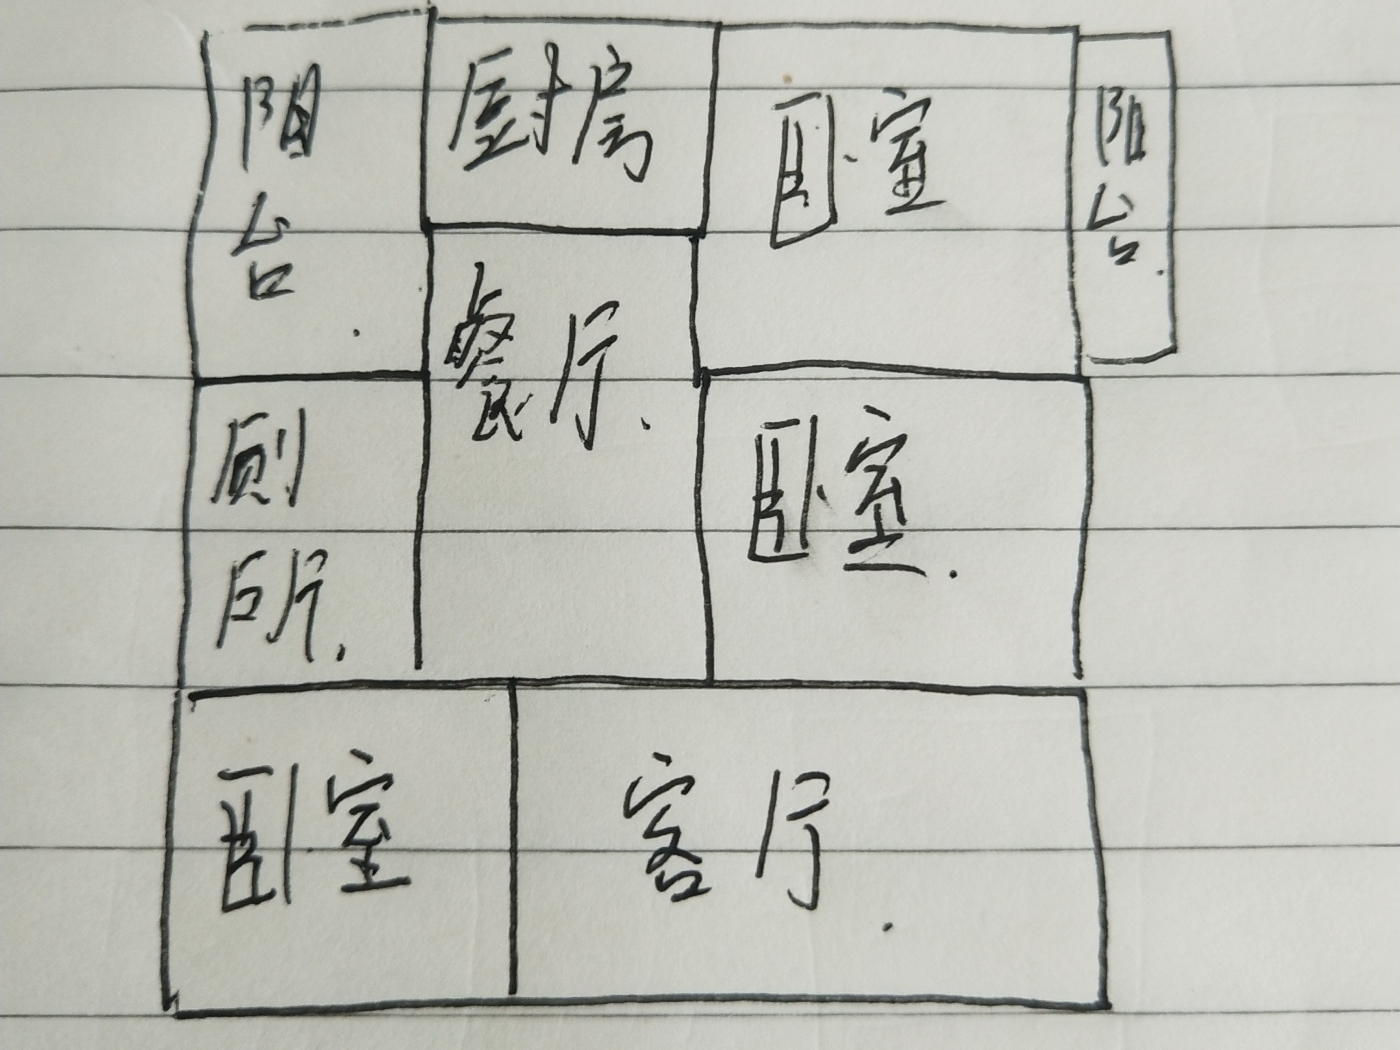 阳台
厨房
卧室
阳台
餐厅
厕所
卧室
卧室
客厅